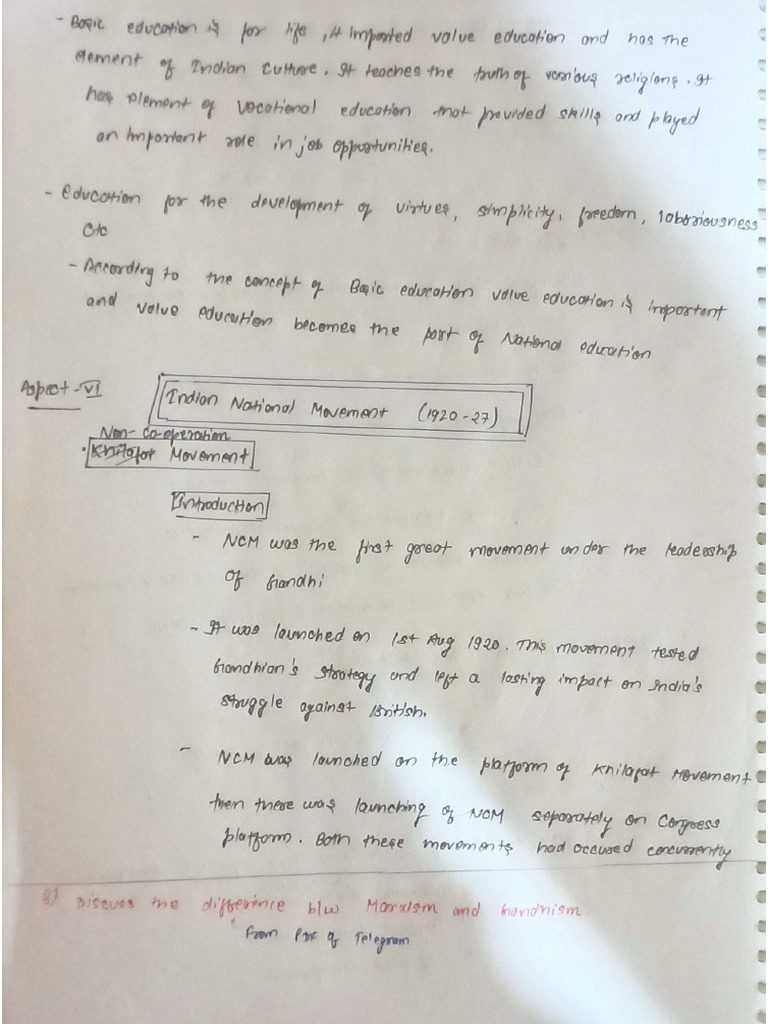 - Basic education is for life, it imparted value education and has the
element of Indian Culture. It teaches the truth of various religions. It
has element of vocational education that provided skills and played
an important role in job opportunities.
- Education for the development of virtues, simplicity, freedom, laboriousness
etc
- According to the concept of Basic education value education is important
and value education becomes the part of National education
Aspect - VI
Indian National Movement (1920-27)
Non-co-operation
· Khilafat Movement
Introduction
- NCM was the first great movement under the leadership
of Gandhi
- It was launched on 1st Aug 1920. This movement tested
Gandhian's strategy and left a lasting impact on India's
struggle against British.
- NCM was launched on the platform of Khilafat Movement
then there was launching of NCM separately on Congress
platform. Both these movements had occused concurrently
Q) Discuss the difference b/w Marxism and Gandhism.
From PDF of Telegram